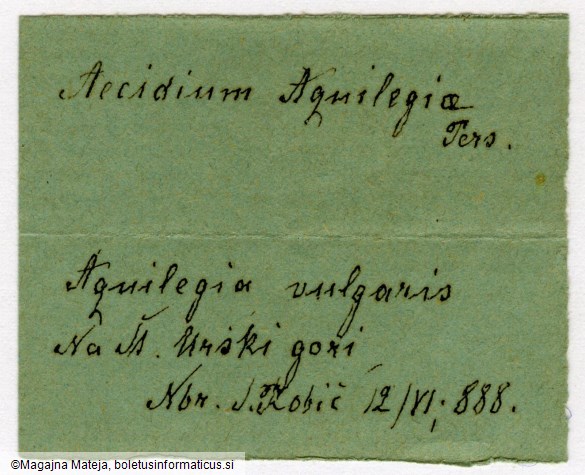 Aecidium Aquilegiæ
Pers.
Aquilegia vulgaris
Na Š. Urški gori
Nbr. S. Robič 12/VI, 888.
©Magajna Mateja, boletusinformaticus.si